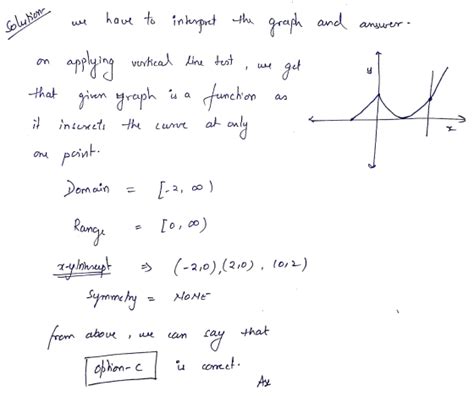 Solution-
we have to interpret the graph and answer.
on applying vertical line test, we get
that given graph is a function as
it insersects the curve at only
one point.
y
x
Domain = [-2, ∞)
Range = [0, ∞)
x-y Intercept ⇒ (-2,0), (2,0), (0,2)
Symmetry = NONE
from above, we can say that
option-C is correct.